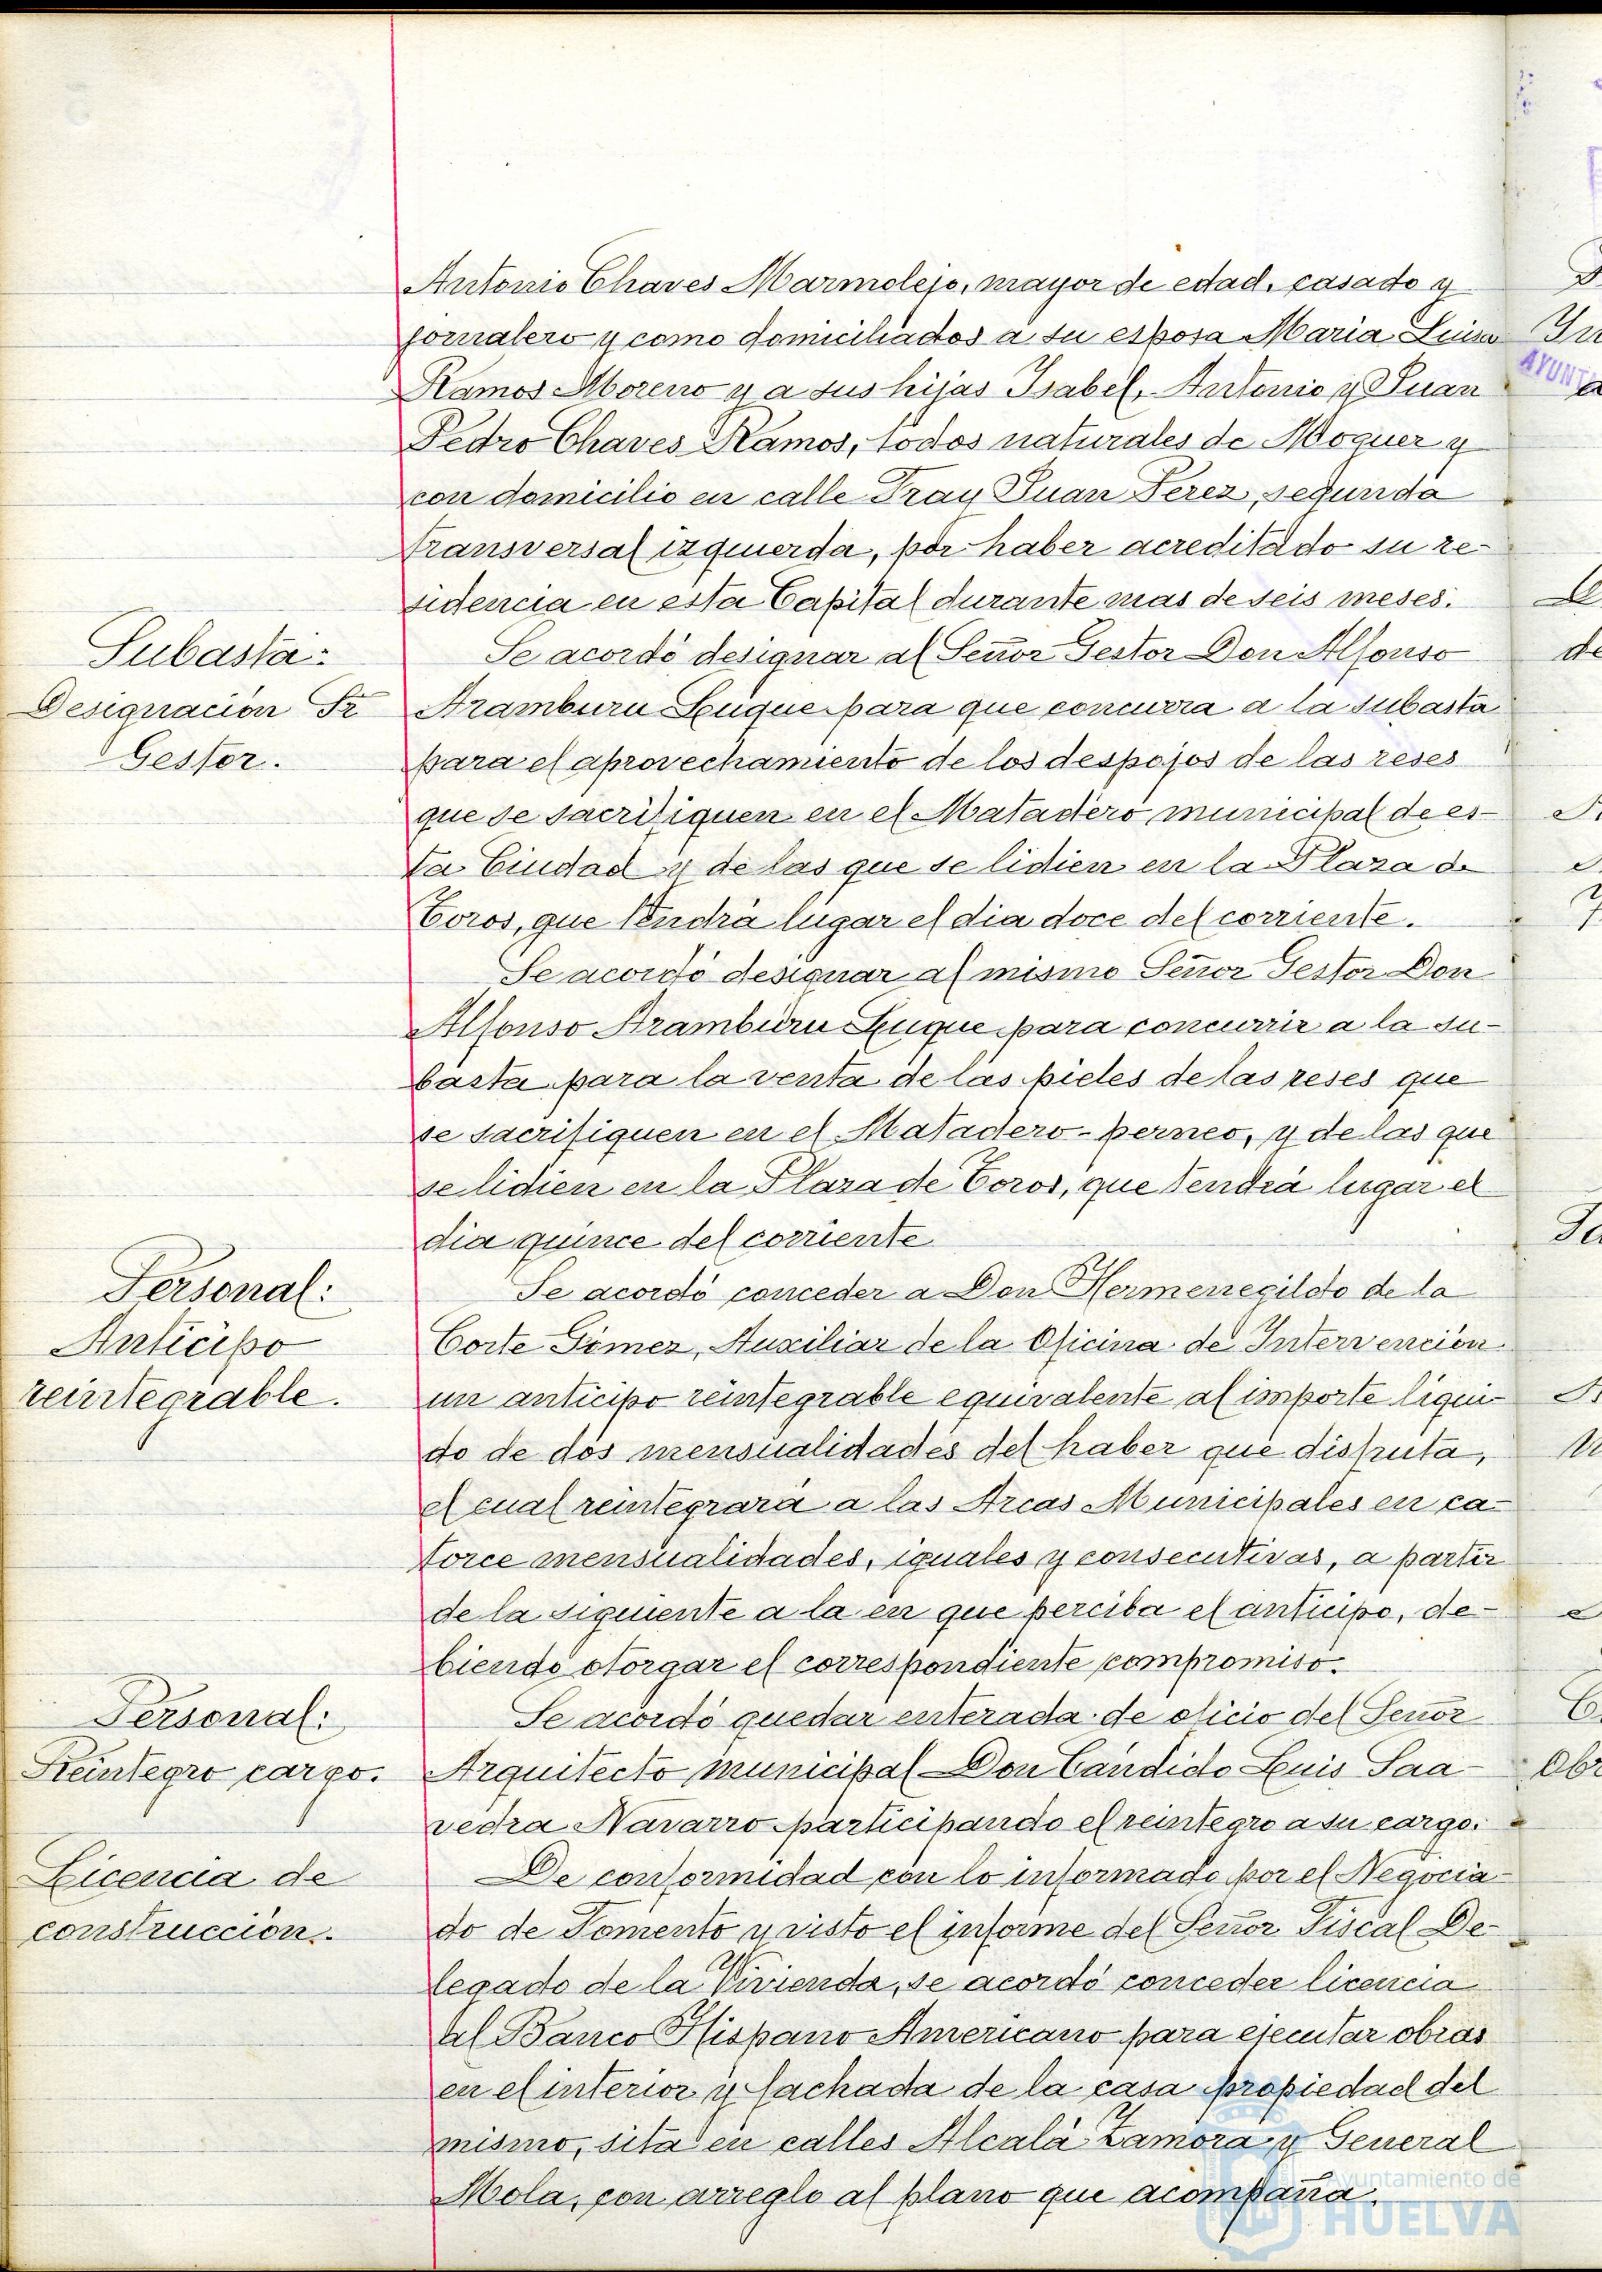 Antonio Chaves Marmolejo, mayor de edad, casado y
jornalero y como domiciliados a su esposa Maria Luisa
Ramos Moreno y a sus hijas Isabel, Antonio y Juan
Pedro Chaves Ramos, todos naturales de Moguer y
con domicilio en calle Fray Juan Perez, segunda
transversal izquierda, por haber acreditado su re-
sidencia en esta Capital durante mas de seis meses.
Subasta:
Designación Sr
Gestor.
Se acordó designar al Señor Gestor Don Alfonso
Aramburu Luque para que concurra a la subasta
para el aprovechamiento de los despojos de las reses
que se sacrifiquen en el Matadero municipal de es-
ta Ciudad y de las que se lidien en la Plaza de
Toros, que tendrá lugar el dia doce del corriente.
Se acordó designar al mismo Señor Gestor Don
Alfonso Aramburu Luque para concurrir a la su-
basta para la venta de las pieles de las reses que
se sacrifiquen en el Matadero-perneo, y de las que
se lidien en la Plaza de Toros, que tendrá lugar el
dia quince del corriente
Personal:
Anticipo
reintegrable.
Se acordó conceder a Don Hermenegildo de la
Corte Gómez, Auxiliar de la Oficina de Intervención
un anticipo reintegrable equivalente al importe liqui-
do de dos mensualidades del haber que disfruta,
el cual reintegrará a las Arcas Municipales en ca-
torce mensualidades, iguales y consecutivas, a partir
de la siguiente a la en que perciba el anticipo, de-
biendo otorgar el correspondiente compromiso.
Personal:
Reintegro cargo.
Se acordó quedar enterada de oficio del Señor
Arquitecto municipal Don Cándido Luis Saa-
vedra Navarro participando el reintegro a su cargo.
Licencia de
construcción.
De conformidad con lo informado por el Negocia-
do de Fomento y visto el informe del Señor Fiscal De-
legado de la Vivienda, se acordó conceder licencia
al Banco Hispano Americano para ejecutar obras
en el interior y fachada de la casa propiedad del
mismo, sita en calles Alcalá Zamora y General
Mola, con arreglo al plano que acompaña.
Ayuntamiento de
HUELVA